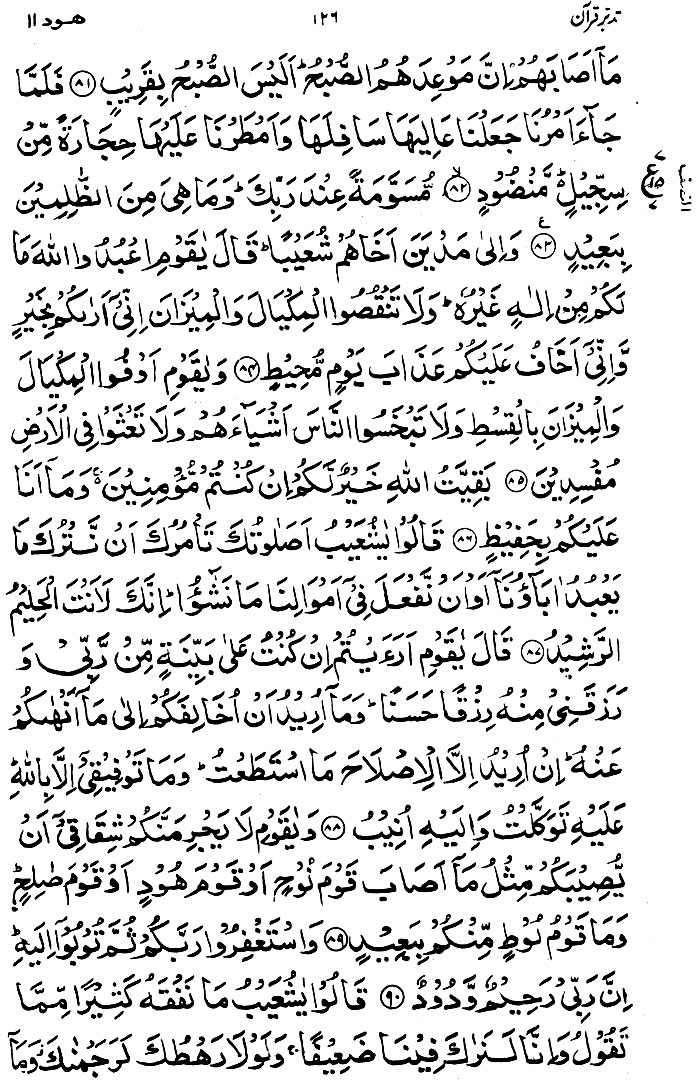 تدبّرِ قرآن ۱۲۶ هود ۱۱
مَآ اَصَابَهُمْ ؕ اِنَّ مَوْعِدَهُمُ الصُّبْحُ ؕ اَلَيْسَ الصُّبْحُ بِقَرِيْبٍ ﴿۸۱﴾ فَلَمَّا
جَآءَ اَمْرُنَا جَعَلْنَا عَالِيَهَا سَافِلَهَا وَاَمْطَرْنَا عَلَيْهَا حِجَارَةً مِّنْ
سِجِّيْلٍ ۙ مَّنْضُوْدٍ ﴿۸۲﴾ مُّسَوَّمَةً عِنْدَ رَبِّكَ ؕ وَمَا هِيَ مِنَ الظّٰلِمِيْنَ
بِبَعِيْدٍ ﴿۸۳﴾ وَاِلٰى مَدْيَنَ اَخَاهُمْ شُعَيْبًا ؕ قَالَ يٰقَوْمِ اعْبُدُوا اللهَ مَا
لَكُمْ مِنْ اِلٰهٍ غَيْرُهٗ ؕ وَلَا تَنْقُصُوا الْمِكْيَالَ وَالْمِيْزَانَ اِنِّيْٓ اَرٰىكُمْ بِخَيْرٍ
وَّاِنِّيْٓ اَخَافُ عَلَيْكُمْ عَذَابَ يَوْمٍ مُّحِيْطٍ ﴿۸۴﴾ وَيٰقَوْمِ اَوْفُوا الْمِكْيَالَ
وَالْمِيْزَانَ بِالْقِسْطِ وَلَا تَبْخَسُوا النَّاسَ اَشْيَآءَهُمْ وَلَا تَعْثَوْا فِي الْاَرْضِ
مُفْسِدِيْنَ ﴿۸۵﴾ بَقِيَّتُ اللهِ خَيْرٌ لَّكُمْ اِنْ كُنْتُمْ مُّؤْمِنِيْنَ ۚ وَمَآ اَنَا
عَلَيْكُمْ بِحَفِيْظٍ ﴿۸۶﴾ قَالُوْا يٰشُعَيْبُ اَصَلٰوتُكَ تَاْمُرُكَ اَنْ نَّتْرُكَ مَا
يَعْبُدُ اٰبَآؤُنَآ اَوْ اَنْ نَّفْعَلَ فِيْٓ اَمْوَالِنَا مَا نَشٰٓؤُا ؕ اِنَّكَ لَاَنْتَ الْحَلِيْمُ
الرَّشِيْدُ ﴿۸۷﴾ قَالَ يٰقَوْمِ اَرَءَيْتُمْ اِنْ كُنْتُ عَلٰى بَيِّنَةٍ مِّنْ رَّبِّيْ وَ
رَزَقَنِيْ مِنْهُ رِزْقًا حَسَنًا ؕ وَمَآ اُرِيْدُ اَنْ اُخَالِفَكُمْ اِلٰى مَآ اَنْهٰىكُمْ
عَنْهُ ؕ اِنْ اُرِيْدُ اِلَّا الْاِصْلَاحَ مَا اسْتَطَعْتُ ؕ وَمَا تَوْفِيْقِيْٓ اِلَّا بِاللهِ ؕ
عَلَيْهِ تَوَكَّلْتُ وَاِلَيْهِ اُنِيْبُ ﴿۸۸﴾ وَيٰقَوْمِ لَا يَجْرِمَنَّكُمْ شِقَاقِيْٓ اَنْ
يُّصِيْبَكُمْ مِّثْلُ مَآ اَصَابَ قَوْمَ نُوْحٍ اَوْ قَوْمَ هُوْدٍ اَوْ قَوْمَ صٰلِحٍ ؕ
وَمَا قَوْمُ لُوْطٍ مِّنْكُمْ بِبَعِيْدٍ ﴿۸۹﴾ وَاسْتَغْفِرُوْا رَبَّكُمْ ثُمَّ تُوْبُوْٓا اِلَيْهِ ؕ
اِنَّ رَبِّيْ رَحِيْمٌ وَّدُوْدٌ ﴿۹۰﴾ قَالُوْا يٰشُعَيْبُ مَا نَفْقَهُ كَثِيْرًا مِّمَّا
تَقُوْلُ وَاِنَّا لَنَرٰىكَ فِيْنَا ضَعِيْفًا ۚ وَلَوْلَا رَهْطُكَ لَرَجَمْنٰكَ ؗ وَمَآ